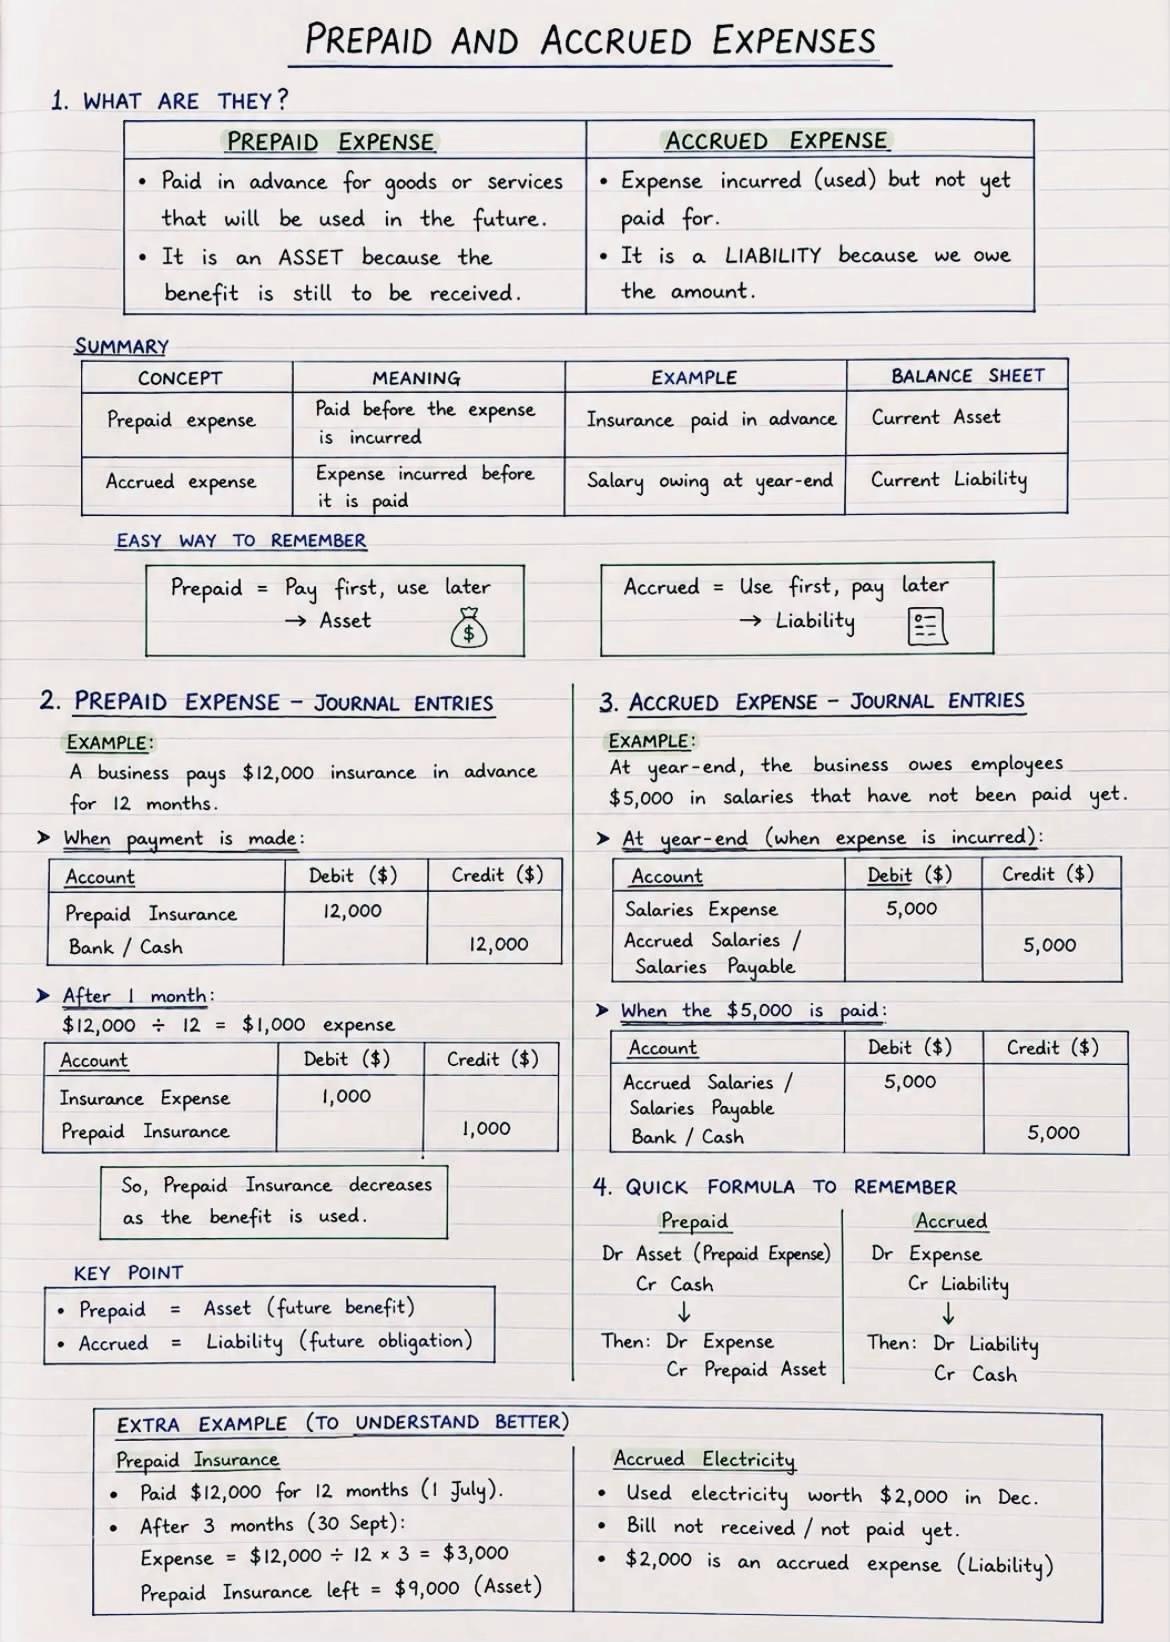 PREPAID AND ACCRUED EXPENSES
1. WHAT ARE THEY?
PREPAID EXPENSE
• Paid in advance for goods or services
that will be used in the future.
• It is an ASSET because the
benefit is still to be received.
ACCRUED EXPENSE
• Expense incurred (used) but not yet
paid for.
• It is a LIABILITY because we owe
the amount.
SUMMARY
CONCEPT MEANING EXAMPLE BALANCE SHEET
Prepaid expense
Paid before the expense
is incurred
Insurance paid in advance
Current Asset
Accrued expense
Expense incurred before
it is paid
Salary owing at year-end
Current Liability
EASY WAY TO REMEMBER
Prepaid = Pay first, use later
→ Asset
$
Accrued = Use first, pay later
→ Liability
2. PREPAID EXPENSE – JOURNAL ENTRIES
EXAMPLE:
A business pays $12,000 insurance in advance
for 12 months.
➤ When payment is made:
Account Debit ($) Credit ($)
Prepaid Insurance 12,000
Bank / Cash 12,000
➤ After 1 month:
$12,000 ÷ 12 = $1,000 expense
Account Debit ($) Credit ($)
Insurance Expense 1,000
Prepaid Insurance 1,000
So, Prepaid Insurance decreases
as the benefit is used.
KEY POINT
• Prepaid = Asset (future benefit)
• Accrued = Liability (future obligation)
3. ACCRUED EXPENSE – JOURNAL ENTRIES
EXAMPLE:
At year-end, the business owes employees
$5,000 in salaries that have not been paid yet.
➤ At year-end (when expense is incurred):
Account Debit ($) Credit ($)
Salaries Expense 5,000
Accrued Salaries /
Salaries Payable 5,000
➤ When the $5,000 is paid:
Account Debit ($) Credit ($)
Accrued Salaries / 5,000
Salaries Payable
Bank / Cash 5,000
4. QUICK FORMULA TO REMEMBER
Prepaid
Dr Asset (Prepaid Expense)
Cr Cash
↓
Then: Dr Expense
Cr Prepaid Asset
Accrued
Dr Expense
Cr Liability
↓
Then: Dr Liability
Cr Cash
EXTRA EXAMPLE (TO UNDERSTAND BETTER)
Prepaid Insurance
• Paid $12,000 for 12 months (1 July).
• After 3 months (30 Sept):
Expense = $12,000 ÷ 12 × 3 = $3,000
Prepaid Insurance left = $9,000 (Asset)
Accrued Electricity
• Used electricity worth $2,000 in Dec.
• Bill not received / not paid yet.
• $2,000 is an accrued expense (Liability)